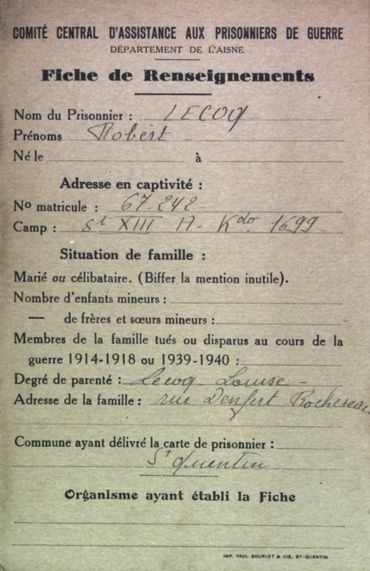 COMITÉ CENTRAL D'ASSISTANCE AUX PRISONNIERS DE GUERRE
DÉPARTEMENT DE L'AISNE
Fiche de Renseignements
Nom du Prisonnier : LECOQ
Prénoms Robert
Né le à
Adresse en captivité :
No matricule : 67.242
Camp : St XIII A - Kdo 1699
Situation de famille :
Marié ou célibataire. (Biffer la mention inutile).
Nombre d'enfants mineurs :
— de frères et sœurs mineurs :
Membres de la famille tués ou disparus au cours de la
guerre 1914-1918 ou 1939-1940 :
Degré de parenté : Lecoq Louise -
Adresse de la famille : rue Denfert Rochereau
Commune ayant délivré la carte de prisonnier :
St Quentin
Organisme ayant établi la Fiche
IMP. PAUL BOURLET & CIE, ST-QUENTIN